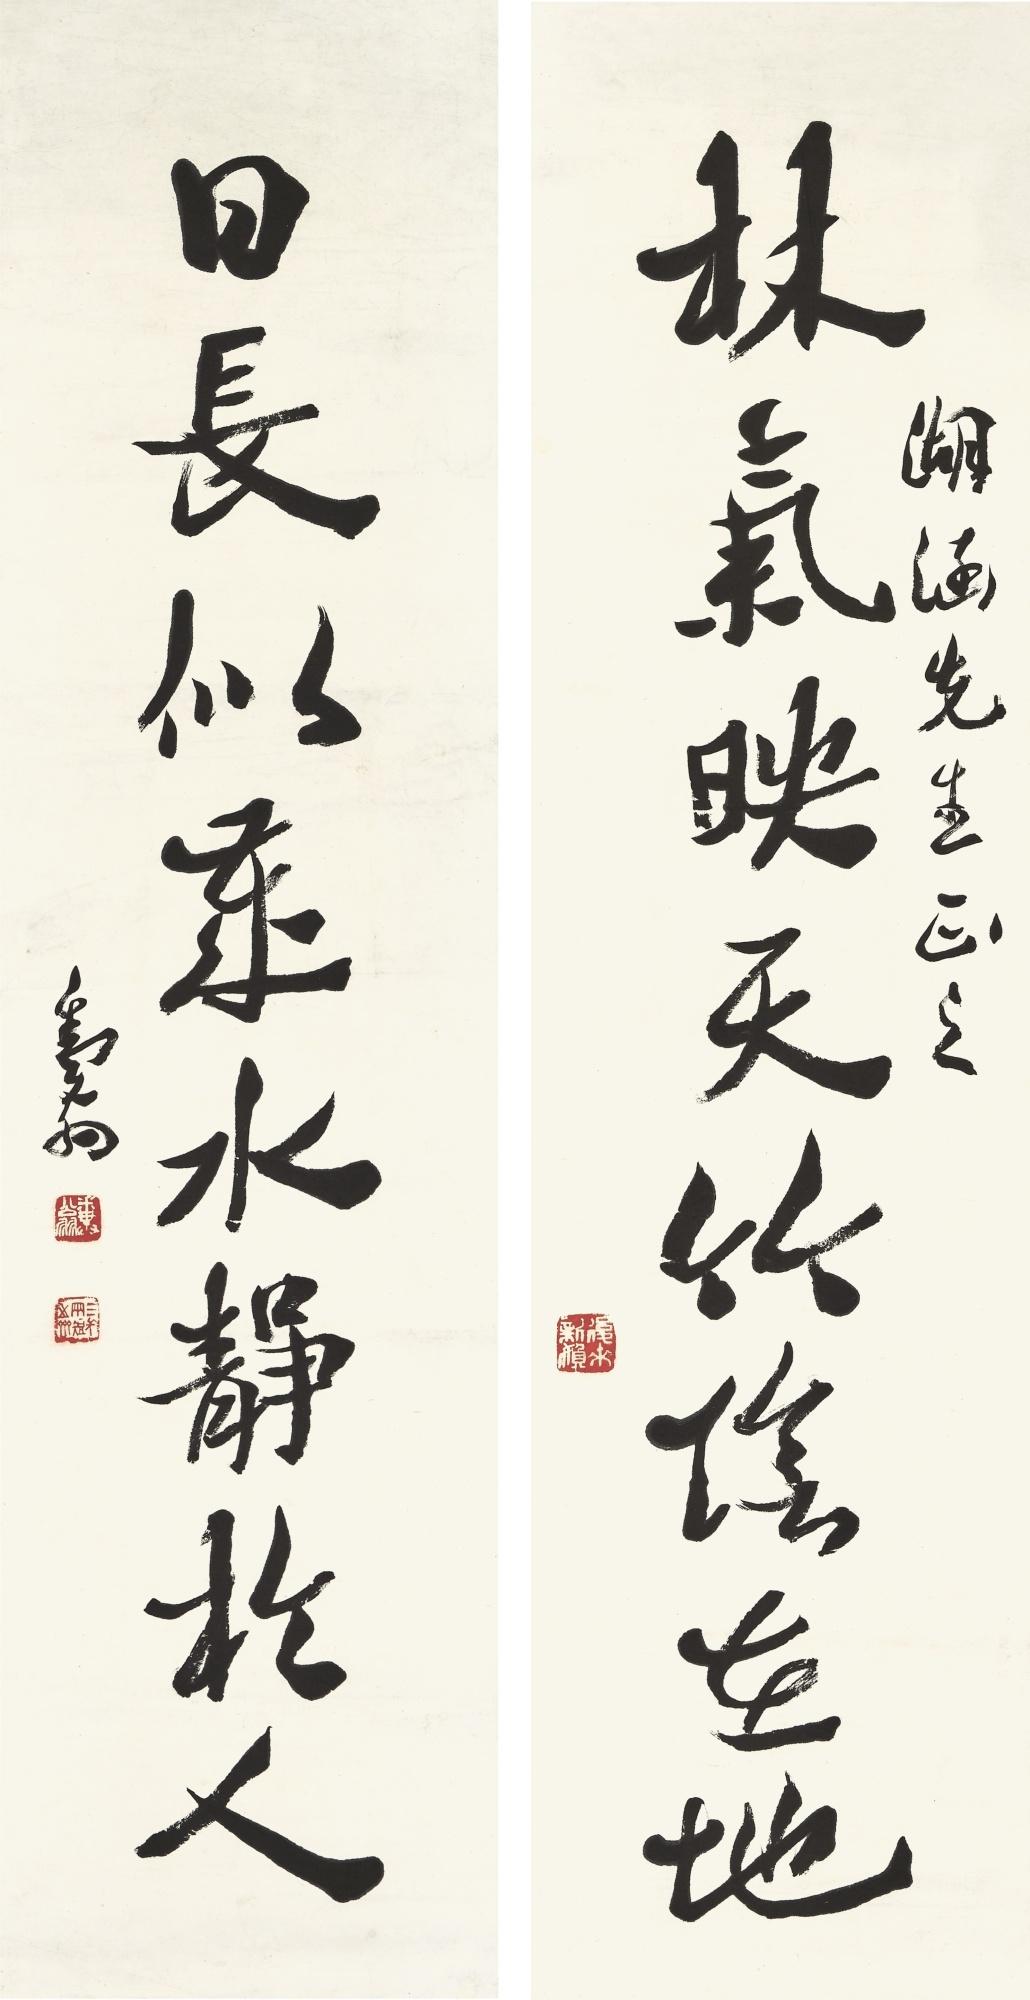 林氣映天竹陰在地
湖涵先生正之
日長似歲水靜於人